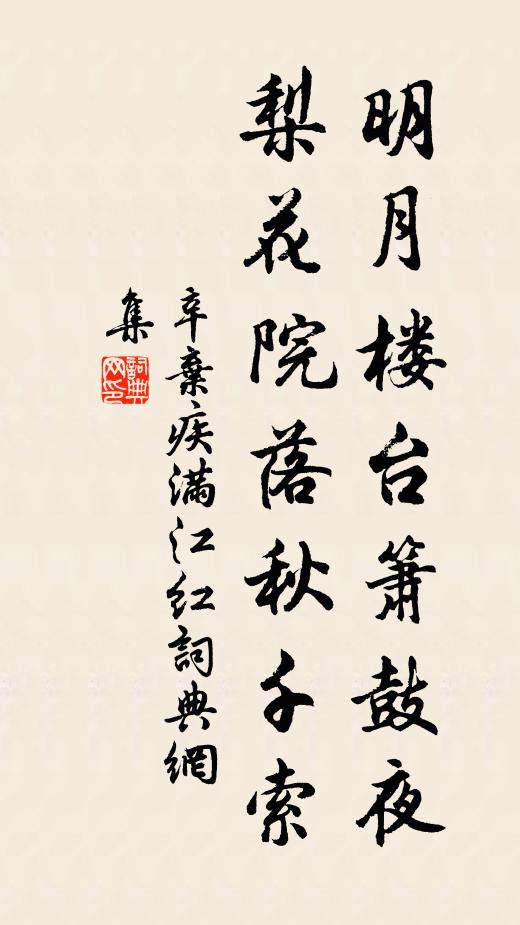 明月楼台箫鼓夜
梨花院落秋千索
辛棄疾满江红詞典網
集
詞典网印